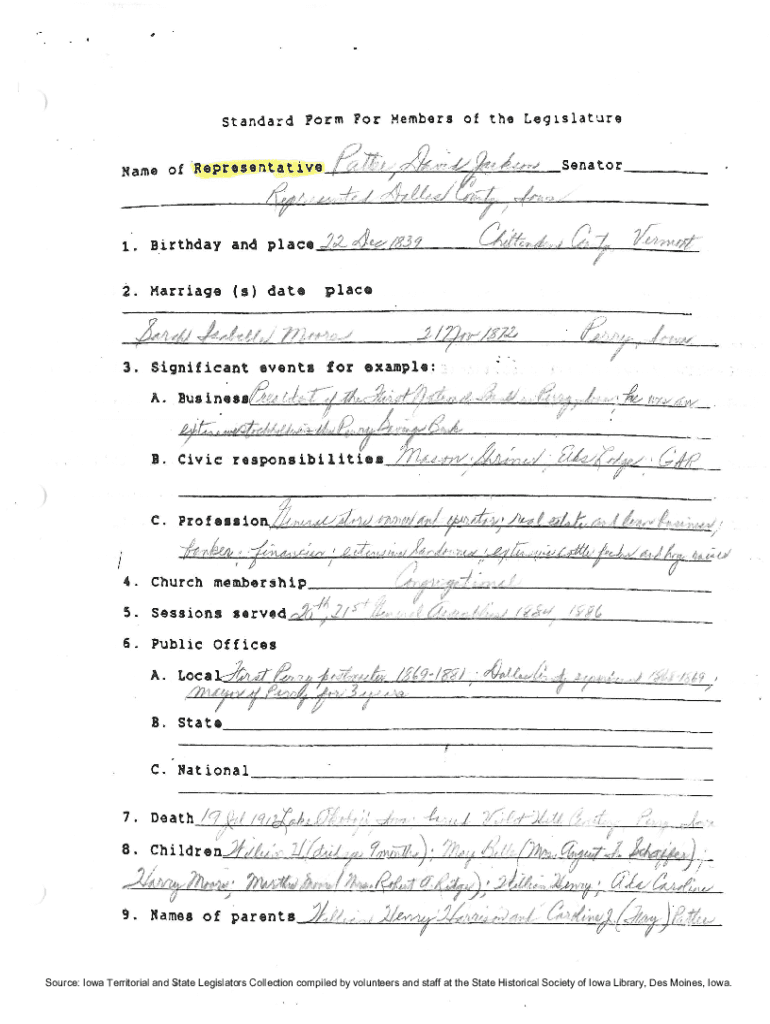 Standard Form For Members of the Legislature
Name of Representative Pattee, David Jackson Senator
Represented Dallas County, Iowa
1. Birthday and place 22 Dec 1839 Chittenden County Vermont
2. Marriage (s) date place
Sarah Isabelle Moore 21 Nov 1872 Perry, Iowa
3. Significant events for example:
A. Business President of the First National Bank in Perry, Iowa; he was an
extensive stockholder in the Perry Savings Bank
B. Civic responsibilities Mason; Shriner; Elks Lodge; GAR
C. Profession General store owner and operator; real estate and loan business;
banker; financier; extensive landowner; extensive cattle feeder and hog raiser
4. Church membership Congregational
5. Sessions served 20th, 21st General Assemblies 1884, 1886
6. Public Offices
A. Local First Perry postmaster 1869-1881; Dallas County 1868-1869;
Mayor of Perry for 3 years
B. State
C. National
7. Death 19 Jul 1912 Lake Okoboji, Iowa buried Violet Hill Cemetery Perry, Iowa
8. Children William H (died age 9 months); May Belle (Mrs. August F. Schaffer);
Harry Moore; Martha (Mrs. Robert A. ); William Henry; Ada Caroline
9. Names of parents William Henry Harrison and Caroline J. (May) Pattee
Source: Iowa Territorial and State Legislators Collection compiled by volunteers and staff at the State Historical Society of Iowa Library, Des Moines, Iowa.